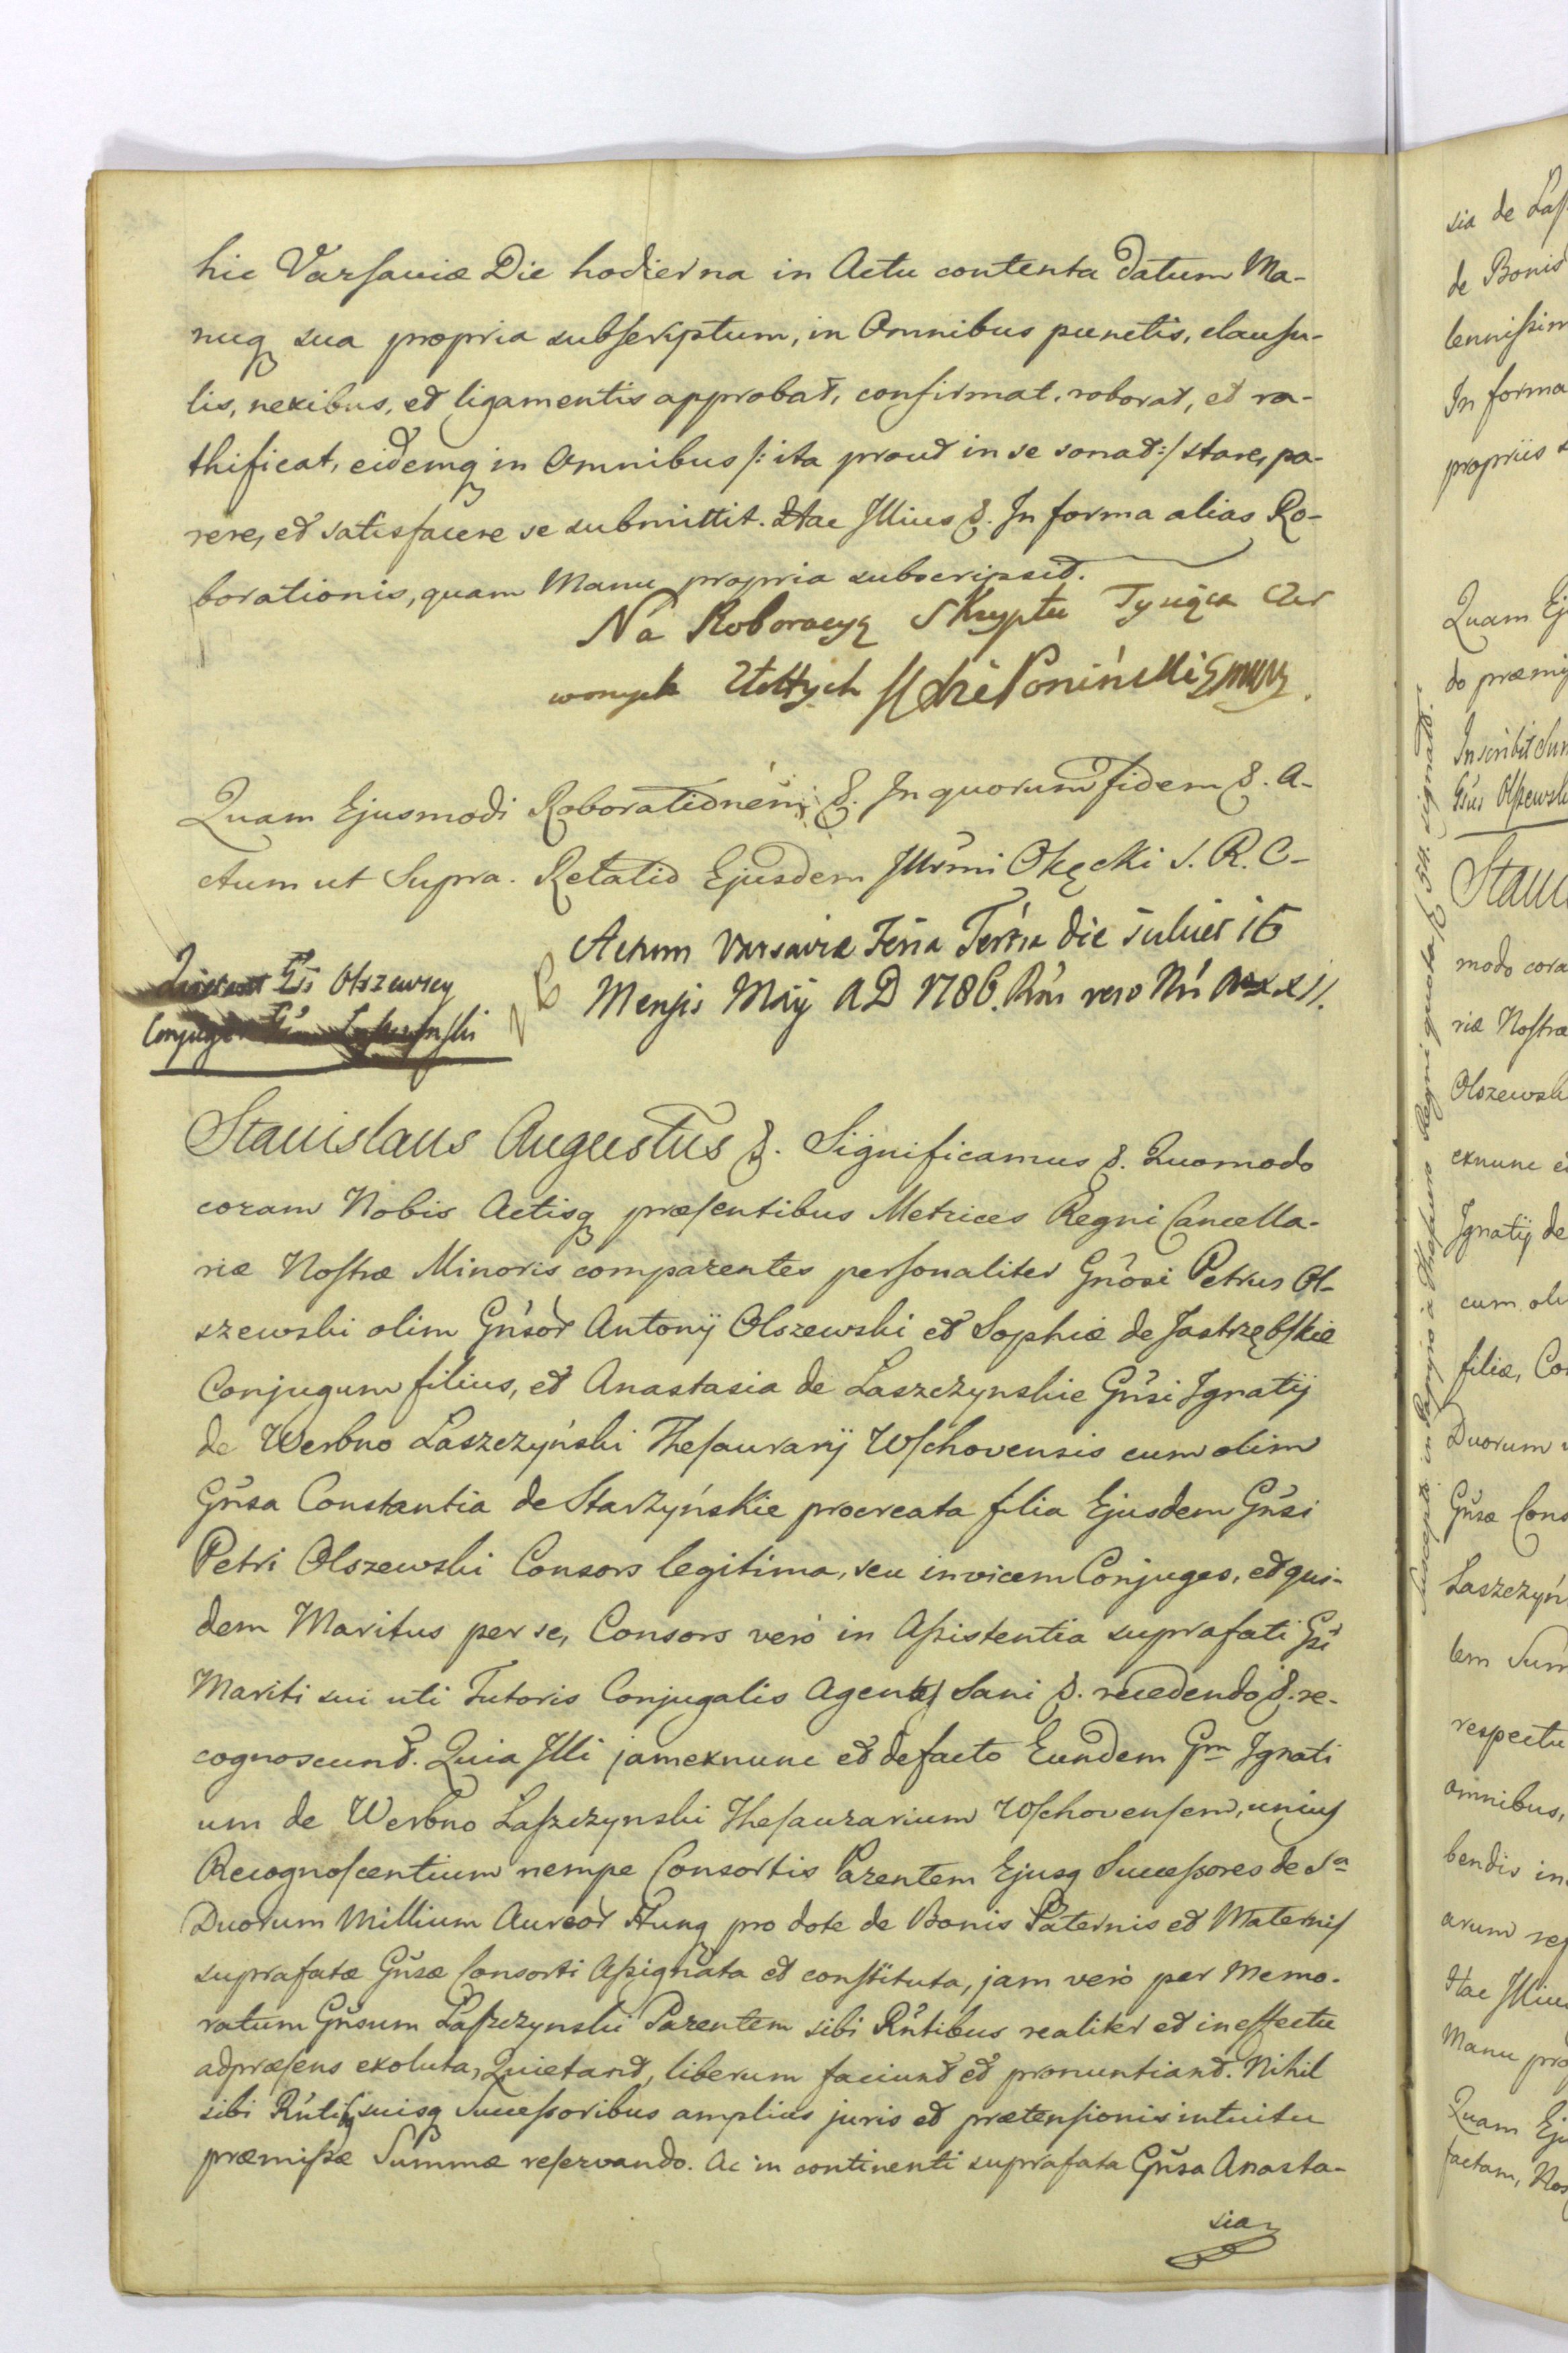 hic Varsaviæ Die hodierna in Actu contenta datum Ma-
nuq sua propria subscriptum, in Omnibus punctis, clausu-
lis, nexibus, et ligamentis approbat, confirmat, roborat, et ra-
thificat, eidemq in Omnibus /: ita prout in se sonat :/ stare, pa-
rere, et satisfacere se submittit. Hac Illius &. In forma alias Ro-
borationis, quam Manu propria subscripsit.
Na Roboracyą Skryptu Tysiąca Czer
wonych Złottych Poninski
Quam Ejusmodi Roborationem &. In quorum fidem &. A-
ctum ut Supra. Relatio Ejusdem Illrmi Okęcki S. R. C-
Actum Varsaviæ Feria Tertia die scilicet 16
Mensis Maij AD 1786. Rñi vero Ñri Año XXII.
Gsi Olszewscy
Conjuges
Stanislaus Augustus &. Significamus &. Quomodo
coram Nobis Actisq præsentibus Metrices Regni Cancella-
riæ Nostræ Minoris comparentes personaliter Gñosi Petrus Ol-
szewski olim Gñsor Antonij Olszewski et Sophiæ de Jastrzębskie
Conjugum filius, et Anastasia de Laszczynskie Gñsi Ignatij
de Werbno Laszczyński Thesaurarij Wschovensis cum olim
Gñsa Constantia de Starzyńskie procreata filia Ejusdem Gñsi
Petri Olszewski Consors legitima, seu invicem Conjuges, et qui-
dem Maritus per se, Consors verò in Assistentia suprafati Gsi
Mariti sui uti Tutoris Conjugalis Agentes Sani &. recedendo &. re-
cognoscunt. Quia Illi jamexnunc et defacto Eundem Gm Ignati
um de Werbno Laszczynski Thesaurarium Wschovensem, unius
Recognoscentium nempe Consortis Parentem Ejusq Successores de Sa
Duorum Millium Aureor Hung pro dote de Bonis Paternis et Maternis
suprafatæ Gñsæ Consorti Assignata et constituta, jam verò per Memo-
ratum Gñsum Laszczynski Parentem sibi Rñtibus realiter et in effectu
adpræsens exoluta, Quietant, liberum faciunt et pronuntiant. Nihil
sibi Rñtibus suisq Successoribus amplius juris et prætensionis intuitu
præmissæ Summæ reservando. Ac in continenti suprafata Gñsa Anasta-
sia
sia de Las
de Bonis
lennissim
In forma
propriis s
Quam Ej
do præmi
Inscribit Sum
Gsus Olszewsk
Stani
modo cora
riæ Nostræ
Olszewski
exnunc et
Ignatij de
cum oli
filiæ, Co
Duorum
Gñsæ Cons
Laszczyń
lem Sum
respectu
omnibus,
bendis in
arum res
Hac Illius
Manu pro
Quam Ej
factam, Nos